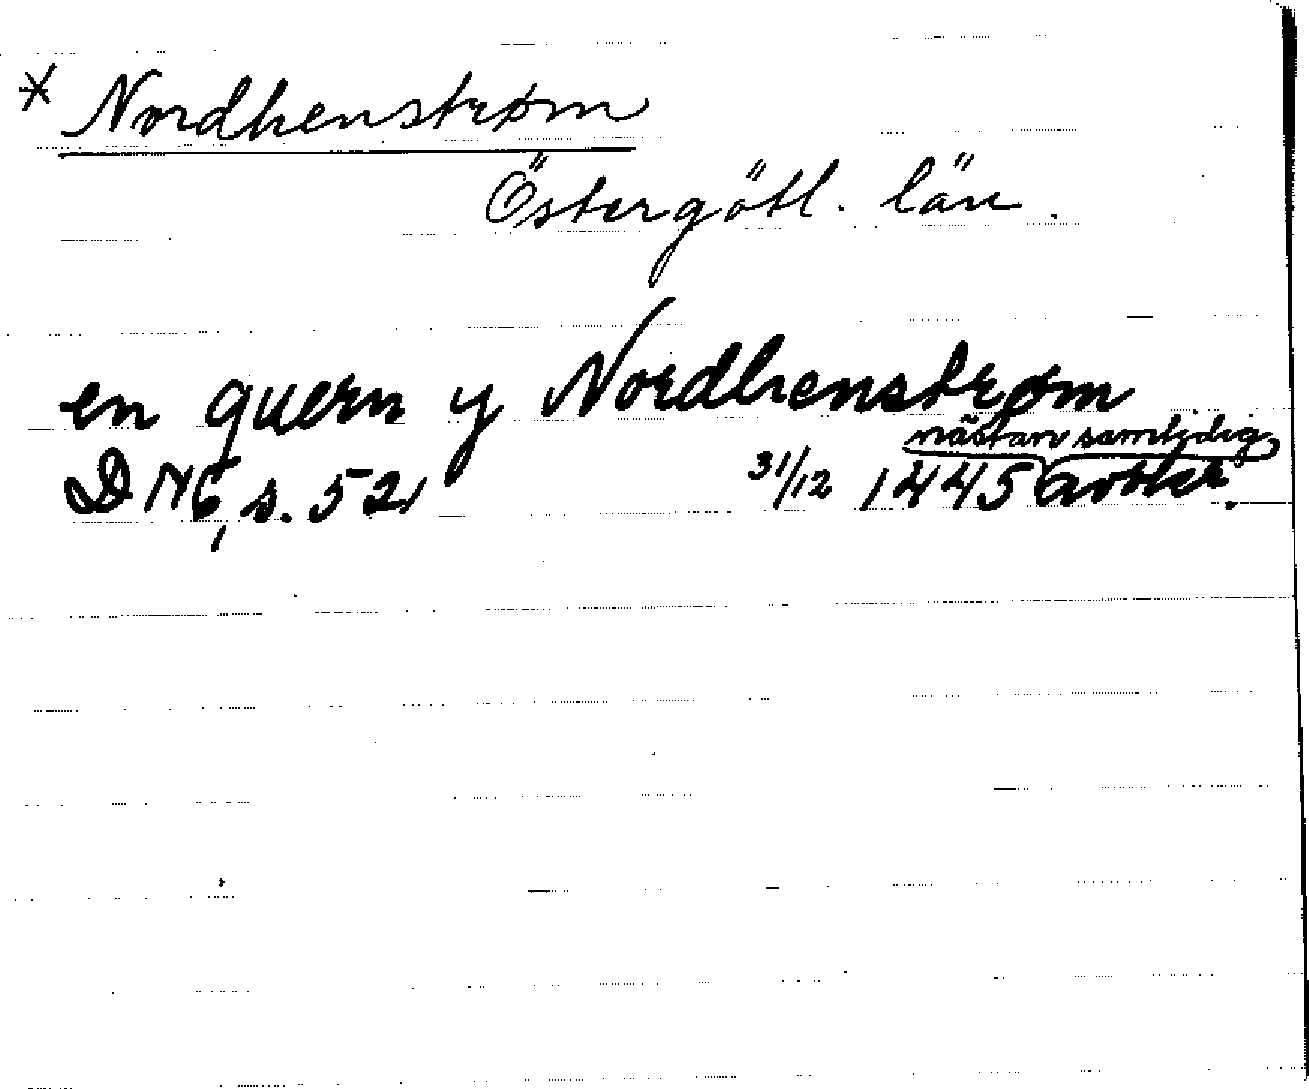 * Nordhenstrøm
Östergötl. län.
en quern y Nordhenstrøm
nästan samtidig
DN 6, s. 521 31/12 1445 avskr.